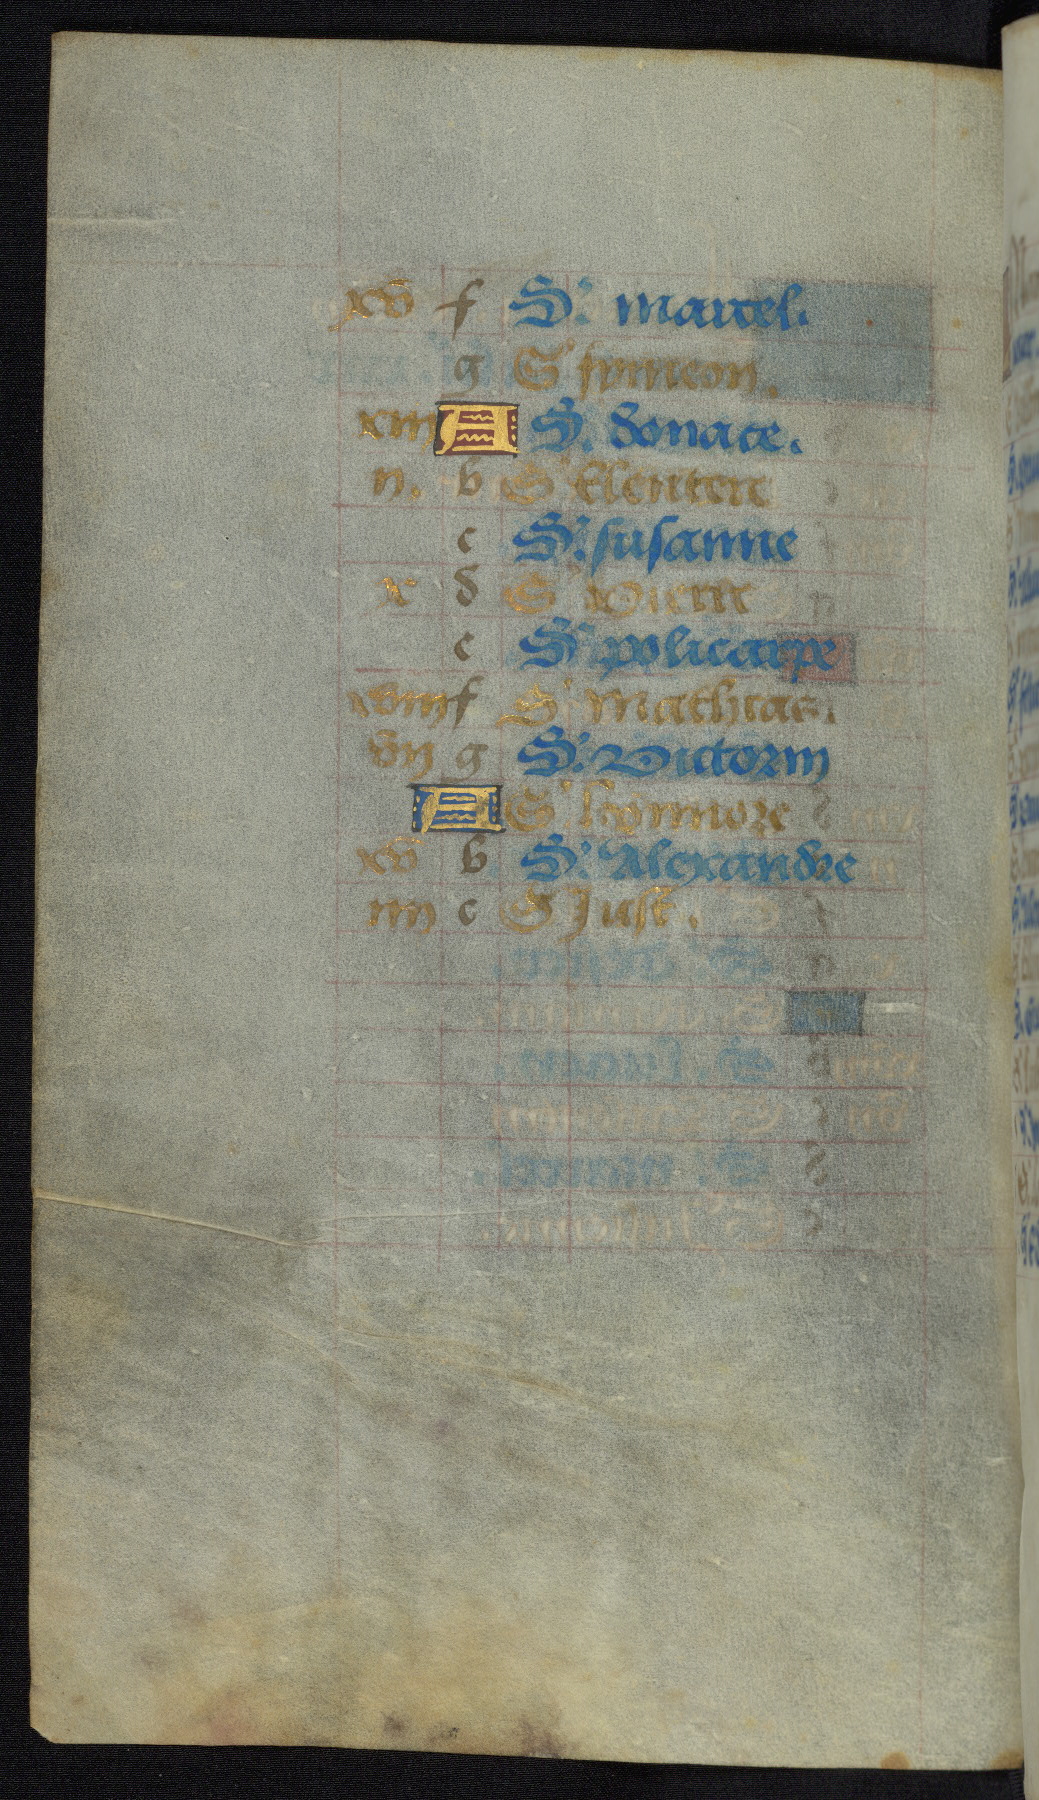 xv f S. marcel.
g S symeon.
xiii A S. donace.
ii. b S Eleutere
c S. susanne
x d S
e S policarpe
xviii f S Mathias.
vii g S. Victorin
A S
xv b S. Alexandre
iiii c S Just.